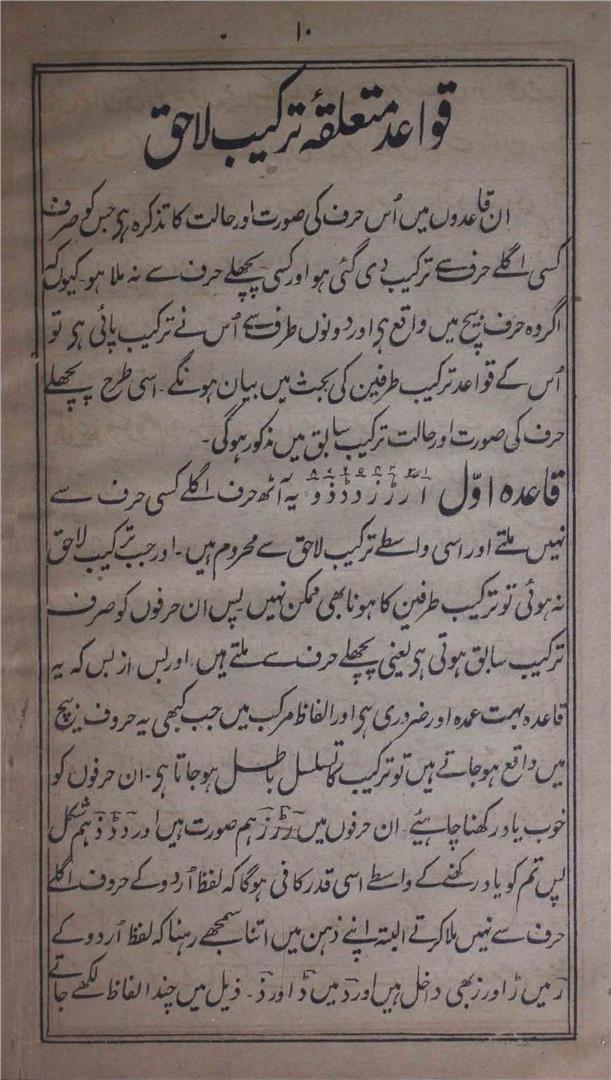 ۱۰
قواعد متعلقۂ ترکیب لاحق
ان قاعدوں میں اُس حرف کی صورت اور حالت کا تذکرہ ہی جس کو صرف
کسی اگلے حرف سے ترکیب دی گئی ہو اور کسی پچھلے حرف سے نہ ملا ہو۔ کیوں کہ
اگر وہ حرف بیچ میں واقع ہی اور دونوں طرف سے اُس نے ترکیب پائی ہی تو
اُس کے قواعد ترکیب طرفین کی بحث میں بیان ہونگے۔ اسی طرح پچھلے
حرف کی صورت اور حالت ترکیب سابق میں مذکور ہوگی۔
قاعدہ اوّل ا ر ڑ ز د ڈ ذ و یہ آٹھ حرف اگلے کسی حرف سے
نہیں ملتے اور اسی واسطے ترکیب لاحق سے محروم ہیں۔ اور جب ترکیب لاحق
نہ ہوئی تو ترکیب طرفین کا ہونا بھی ممکن نہیں پس ان حرفوں کو صرف
ترکیب سابق ہوتی ہی یعنی پچھلے حرف سے ملتے ہیں۔ اور بس از بس کہ یہ
قاعدہ بہت عمدہ اور ضروری ہی اور الفاظ مرکب میں جب کبھی یہ حروف بیچ
میں واقع ہوجاتے ہیں تو ترکیب کا تسلسل باطل ہوجاتا ہی۔ ان حرفوں کو
خوب یاد رکھنا چاہیئے۔ ان حرفوں میں ر ڑ ز ہم صورت ہیں اور د ڈ ذ ہم شکل
پس تم کو یاد رکھنے کے واسطے اسی قدر کافی ہوگا کہ لفظ اُردو کے حروف اگلے
حرف سے نہیں ملا کرتے البتہ اپنے ذہن میں اتنا سمجھے رہنا کہ لفظ اُردو کے
ر میں ڑ اور ز بھی داخل ہیں اور د میں ڈ اور ذ۔ ذیل میں چند الفاظ لکھے جاتے